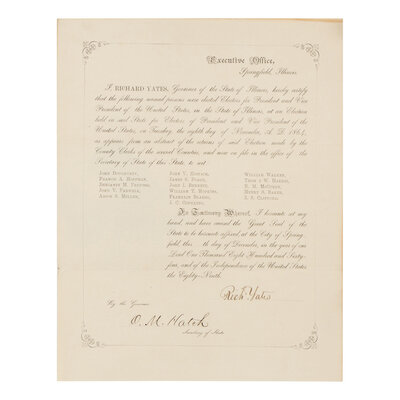 Executive Office,
Springfield, Illinois.
I, RICHARD YATES, Governor of the State of Illinois, hereby certify
that the following named persons were elected Electors for President and Vice
President of the United States, in the State of Illinois, at an Election
held in said State for Electors of President and Vice President of the
United States, on Tuesday, the eighth day of November, A. D. 1864,
as appears from an abstract of the returns of said Election made by the
County Clerks of the several Counties, and now on file in the office of the
Secretary of State of this State, to wit:
JOHN DOUGHERTY, JOHN V. EUSTACE, WILLIAM WALKER,
FRANCIS A. HOFFMAN, JAMES S. POAGE, THOS. W. HARRIS,
BENJAMIN M. PRENTISS, JOHN I. BENNETT, N. M. McCURDY,
JOHN V. FARWELL, WILLIAM T. HOPKINS, HENRY S. BAKER,
ANSON S. MILLER, FRANKLIN BLADES, Z. S. CLIFFORD.
J. C. CONKLING,
In Testimony Whereof, I hereunto set my
hand, and have caused the Great Seal of the
State to be hereunto affixed at the City of Spring-
field, this th day of December, in the year of our
Lord One Thousand Eight Hundred and Sixty-
four, and of the Independence of the United States
the Eighty-Ninth.
Rich. Yates
By the Governor
O. M. Hatch
Secretary of State